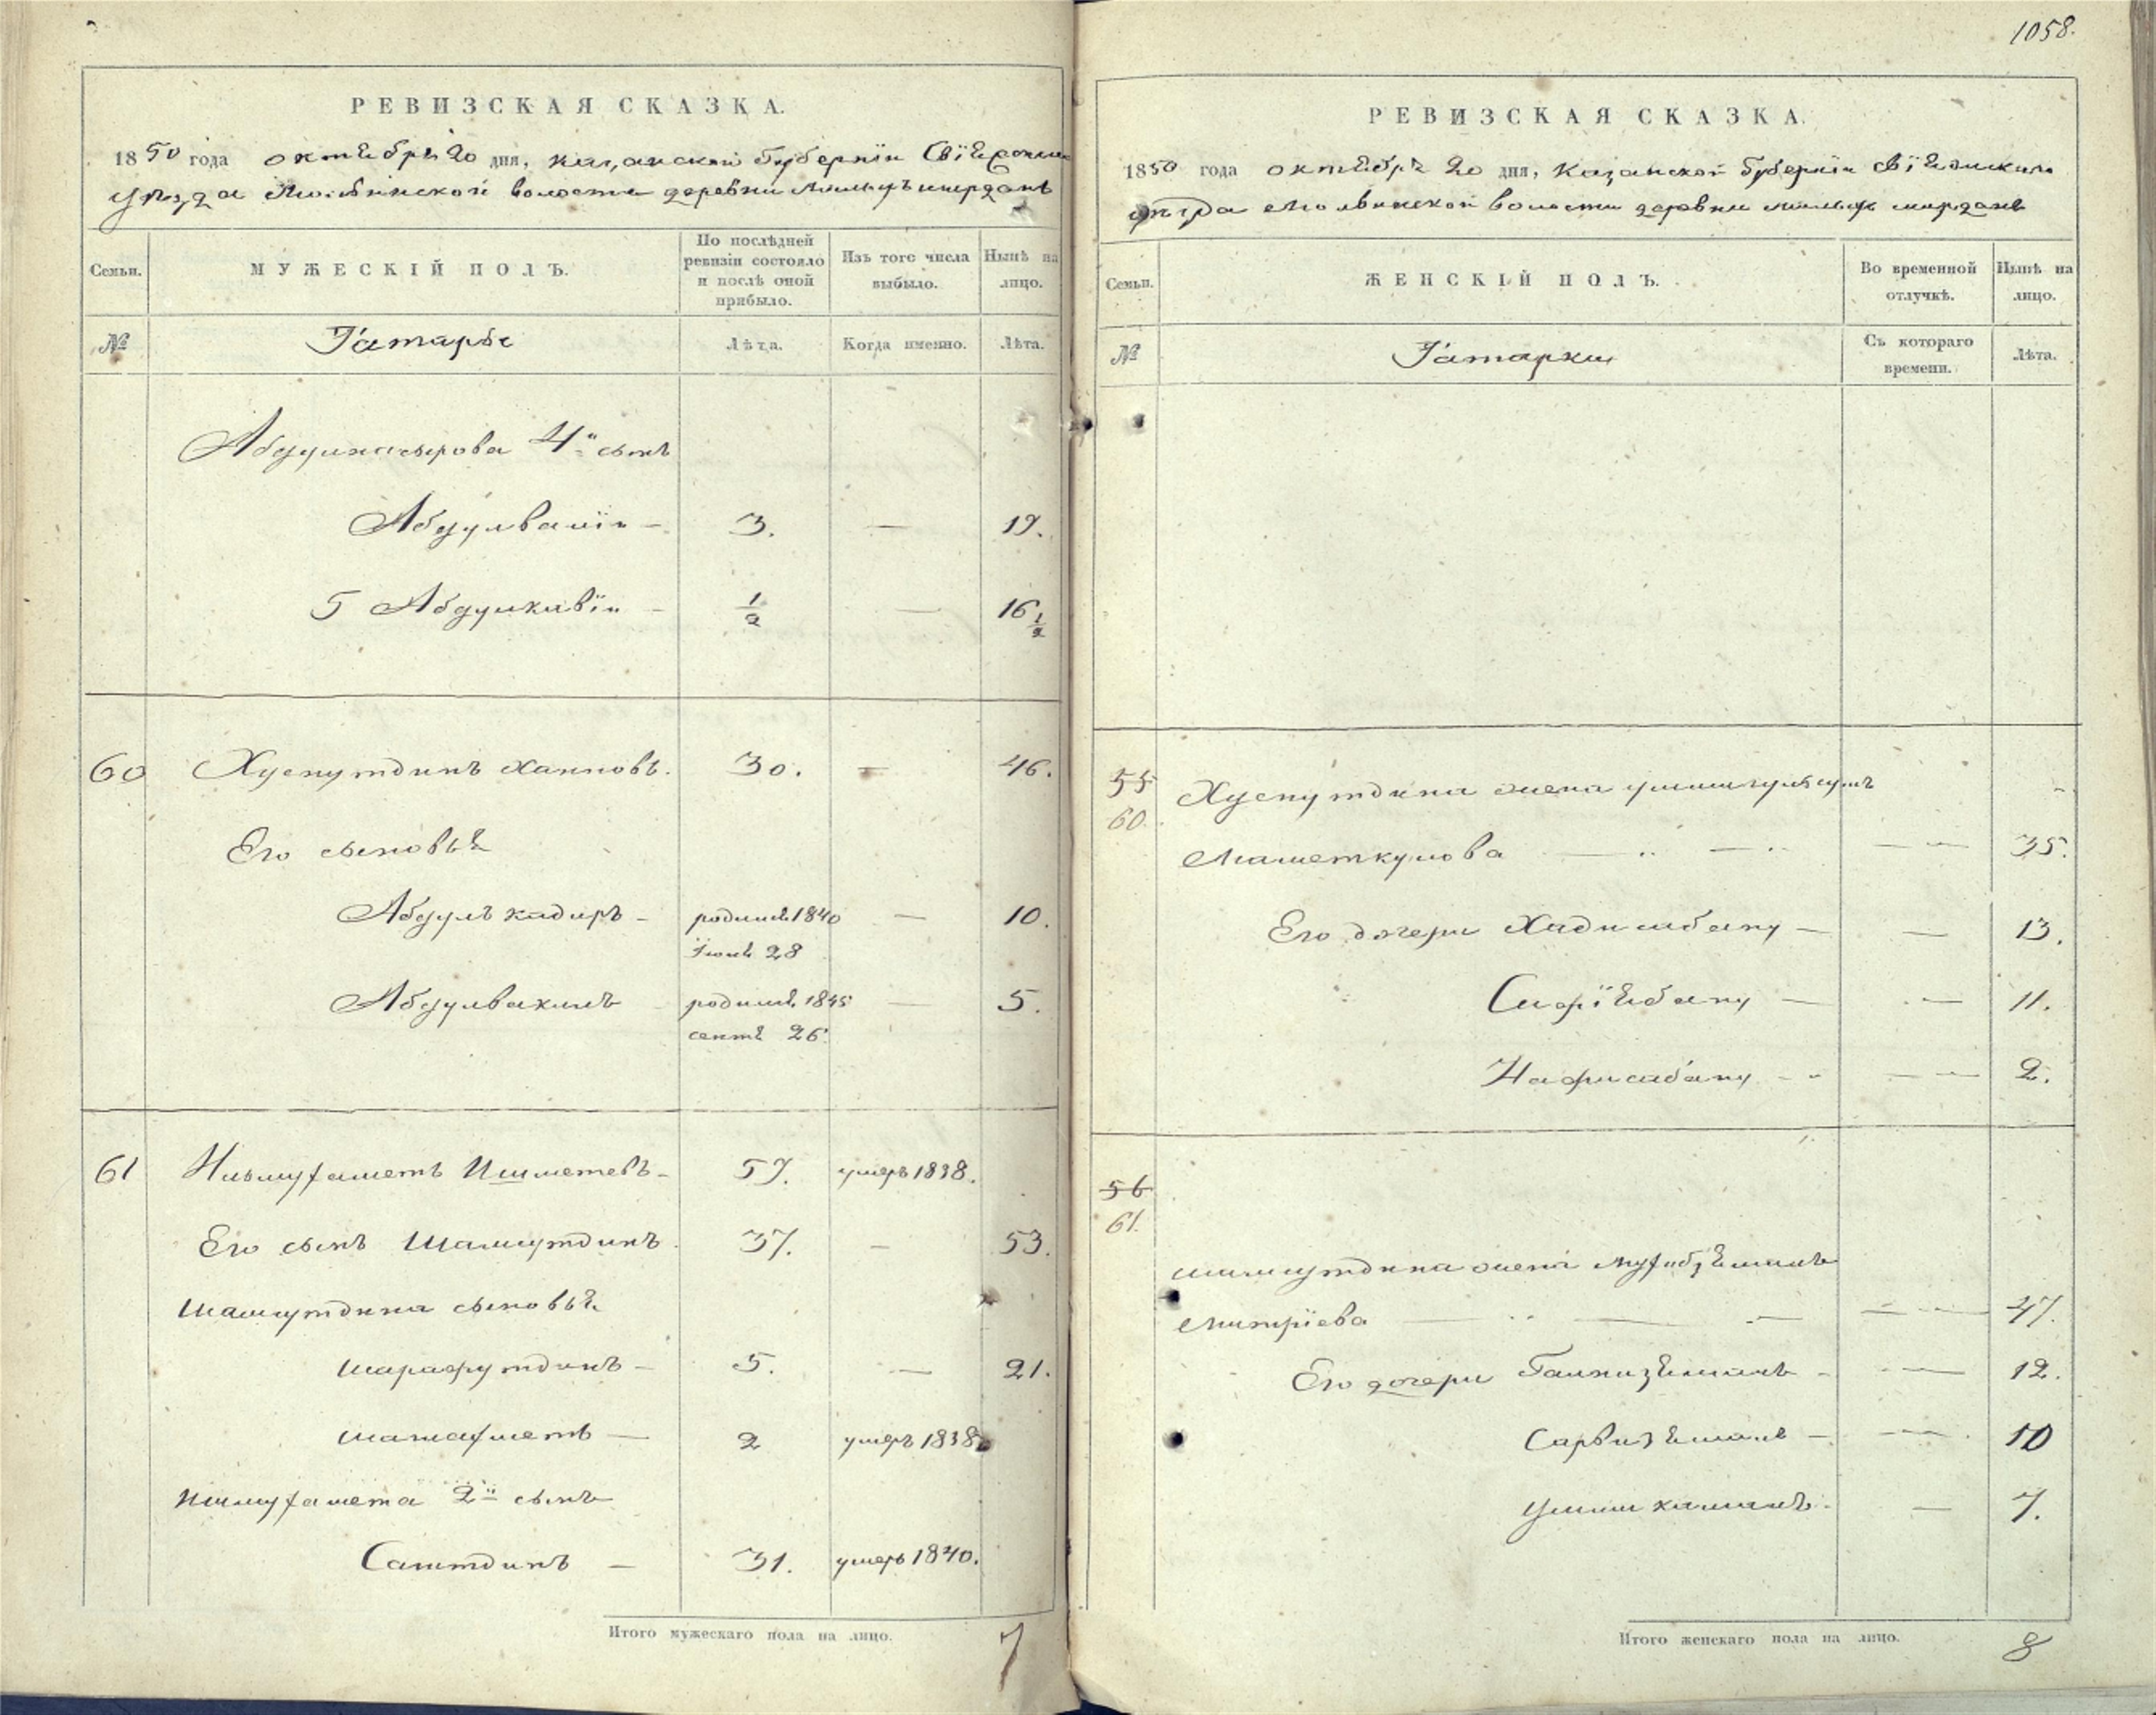 1058.
РЕВИЗСКАЯ СКАЗКА.
1850 года октября 20 дня, Казанской Губернiи Свiяжска
уѣзда Молвинской волости деревни
Семьи.
МУЖЕСКІЙ ПОЛЪ.
По послѣдней ревизіи состояло и послѣ оной прибыло.
Изъ того числа выбыло.
Нынѣ на лицо.
№
Татарье
Лѣта.
Когда именно.
Лѣта.
Абдулнасырова 4й сынъ
Абдулвалiи — 3. — 19.
5 Абдулкавiи — 1/2 — 16 1/2
60 Хуснутдинъ Хаиповъ. 30. — 46.
Его сыновья
Абдулъ кадиръ — родился 1840 — 10.
Iюня 28
Абдулвахитъ родился 1845 — 5.
сентя 26
61 Ишмухаметъ Ишметевъ — 57. умеръ 1838.
Его сынъ Шамсутдинъ 37. — 53.
Шамсутдина сыновья
Шарафутдинъ — 5. — 21.
Шахахметъ — 2 умеръ 1838
Ишмухамета 2й сынъ
Саитдинъ — 31. умеръ 1840.
Итого мужескаго пола на лицо. 7
РЕВИЗСКАЯ СКАЗКА.
1850 года октября 20 дня, Казанской Губернiи Свiяжскаго
уѣзда Молвинской волости деревни
Семьи.
ЖЕНСКІЙ ПОЛЪ.
Во временной отлучкѣ.
Нынѣ на лицо.
№
Татарки
Съ котораго времени.
Лѣта.
55 Хуснутдина жена
60.
Маметкулова — — 35.
Его дочери Хадисабану — — 13.
Сафiябану — — 11.
Нафисабану — — 2.
56
61.
Шамсутдина жена
— — 47.
Его дочери — — 12.
Сарвизямалъ — — 10
— 7.
Итого женскаго пола на лицо. 8